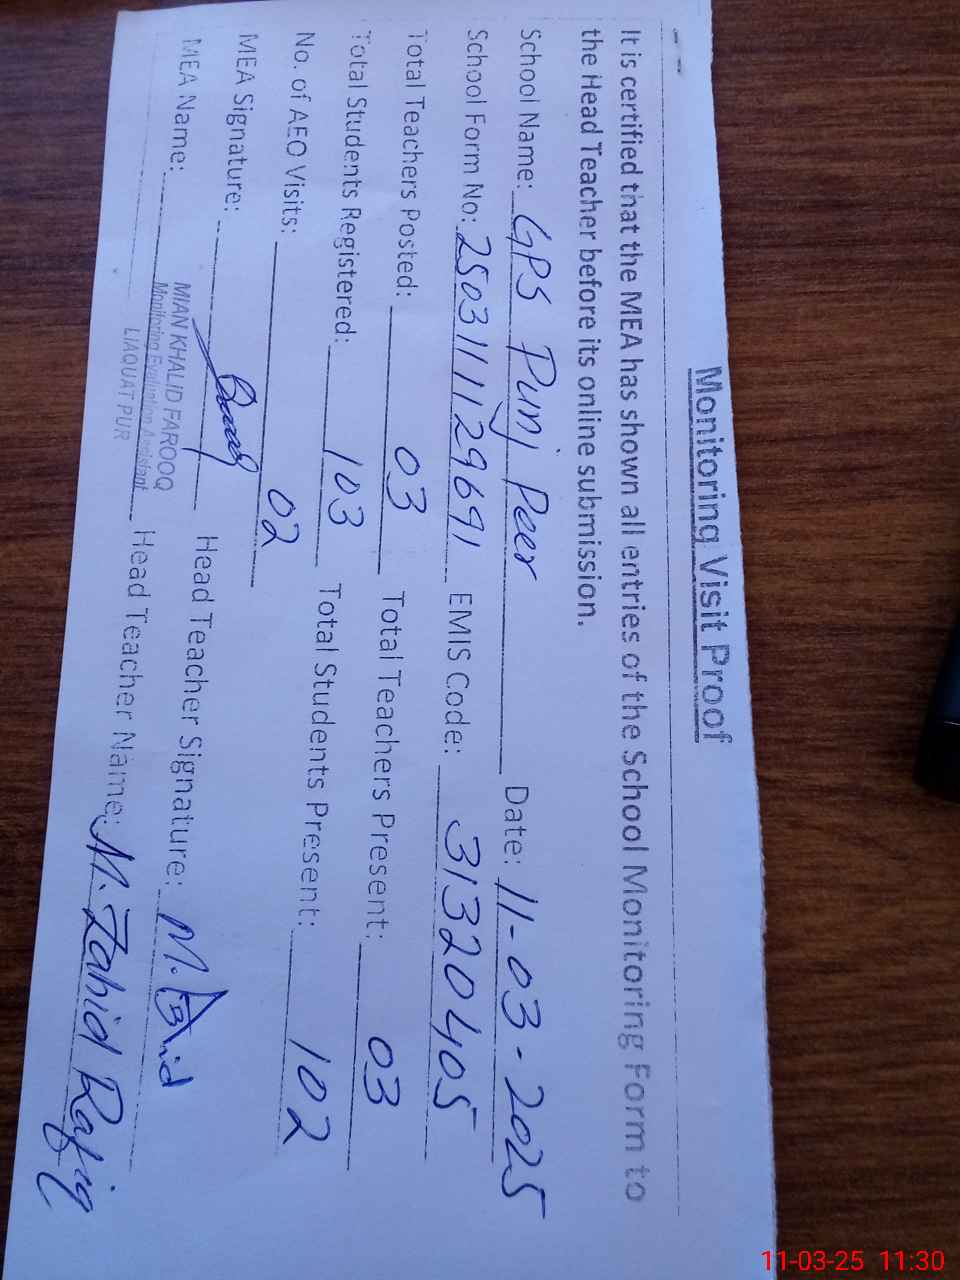 Monitoring Visit Proof
It is certified that the MEA has shown all entries of the School Monitoring Form to
the Head Teacher before its online submission.
School Name: GPS Punj Peer Date: 11-03-2025
School Form No: 2503111129691 EMIS Code: 31320405
Total Teachers Posted: 03 Total Teachers Present: 03
Total Students Registered: 103 Total Students Present: 102
No. of AEO Visits: 02
MEA Signature: Head Teacher Signature: M.
MEA Name: MIAN KHALID FAROOQ Head Teacher Name: M. Zahid Rafiq
Monitoring Evaluation Assistant
LIAQUAT PUR
11-03-25 11:30